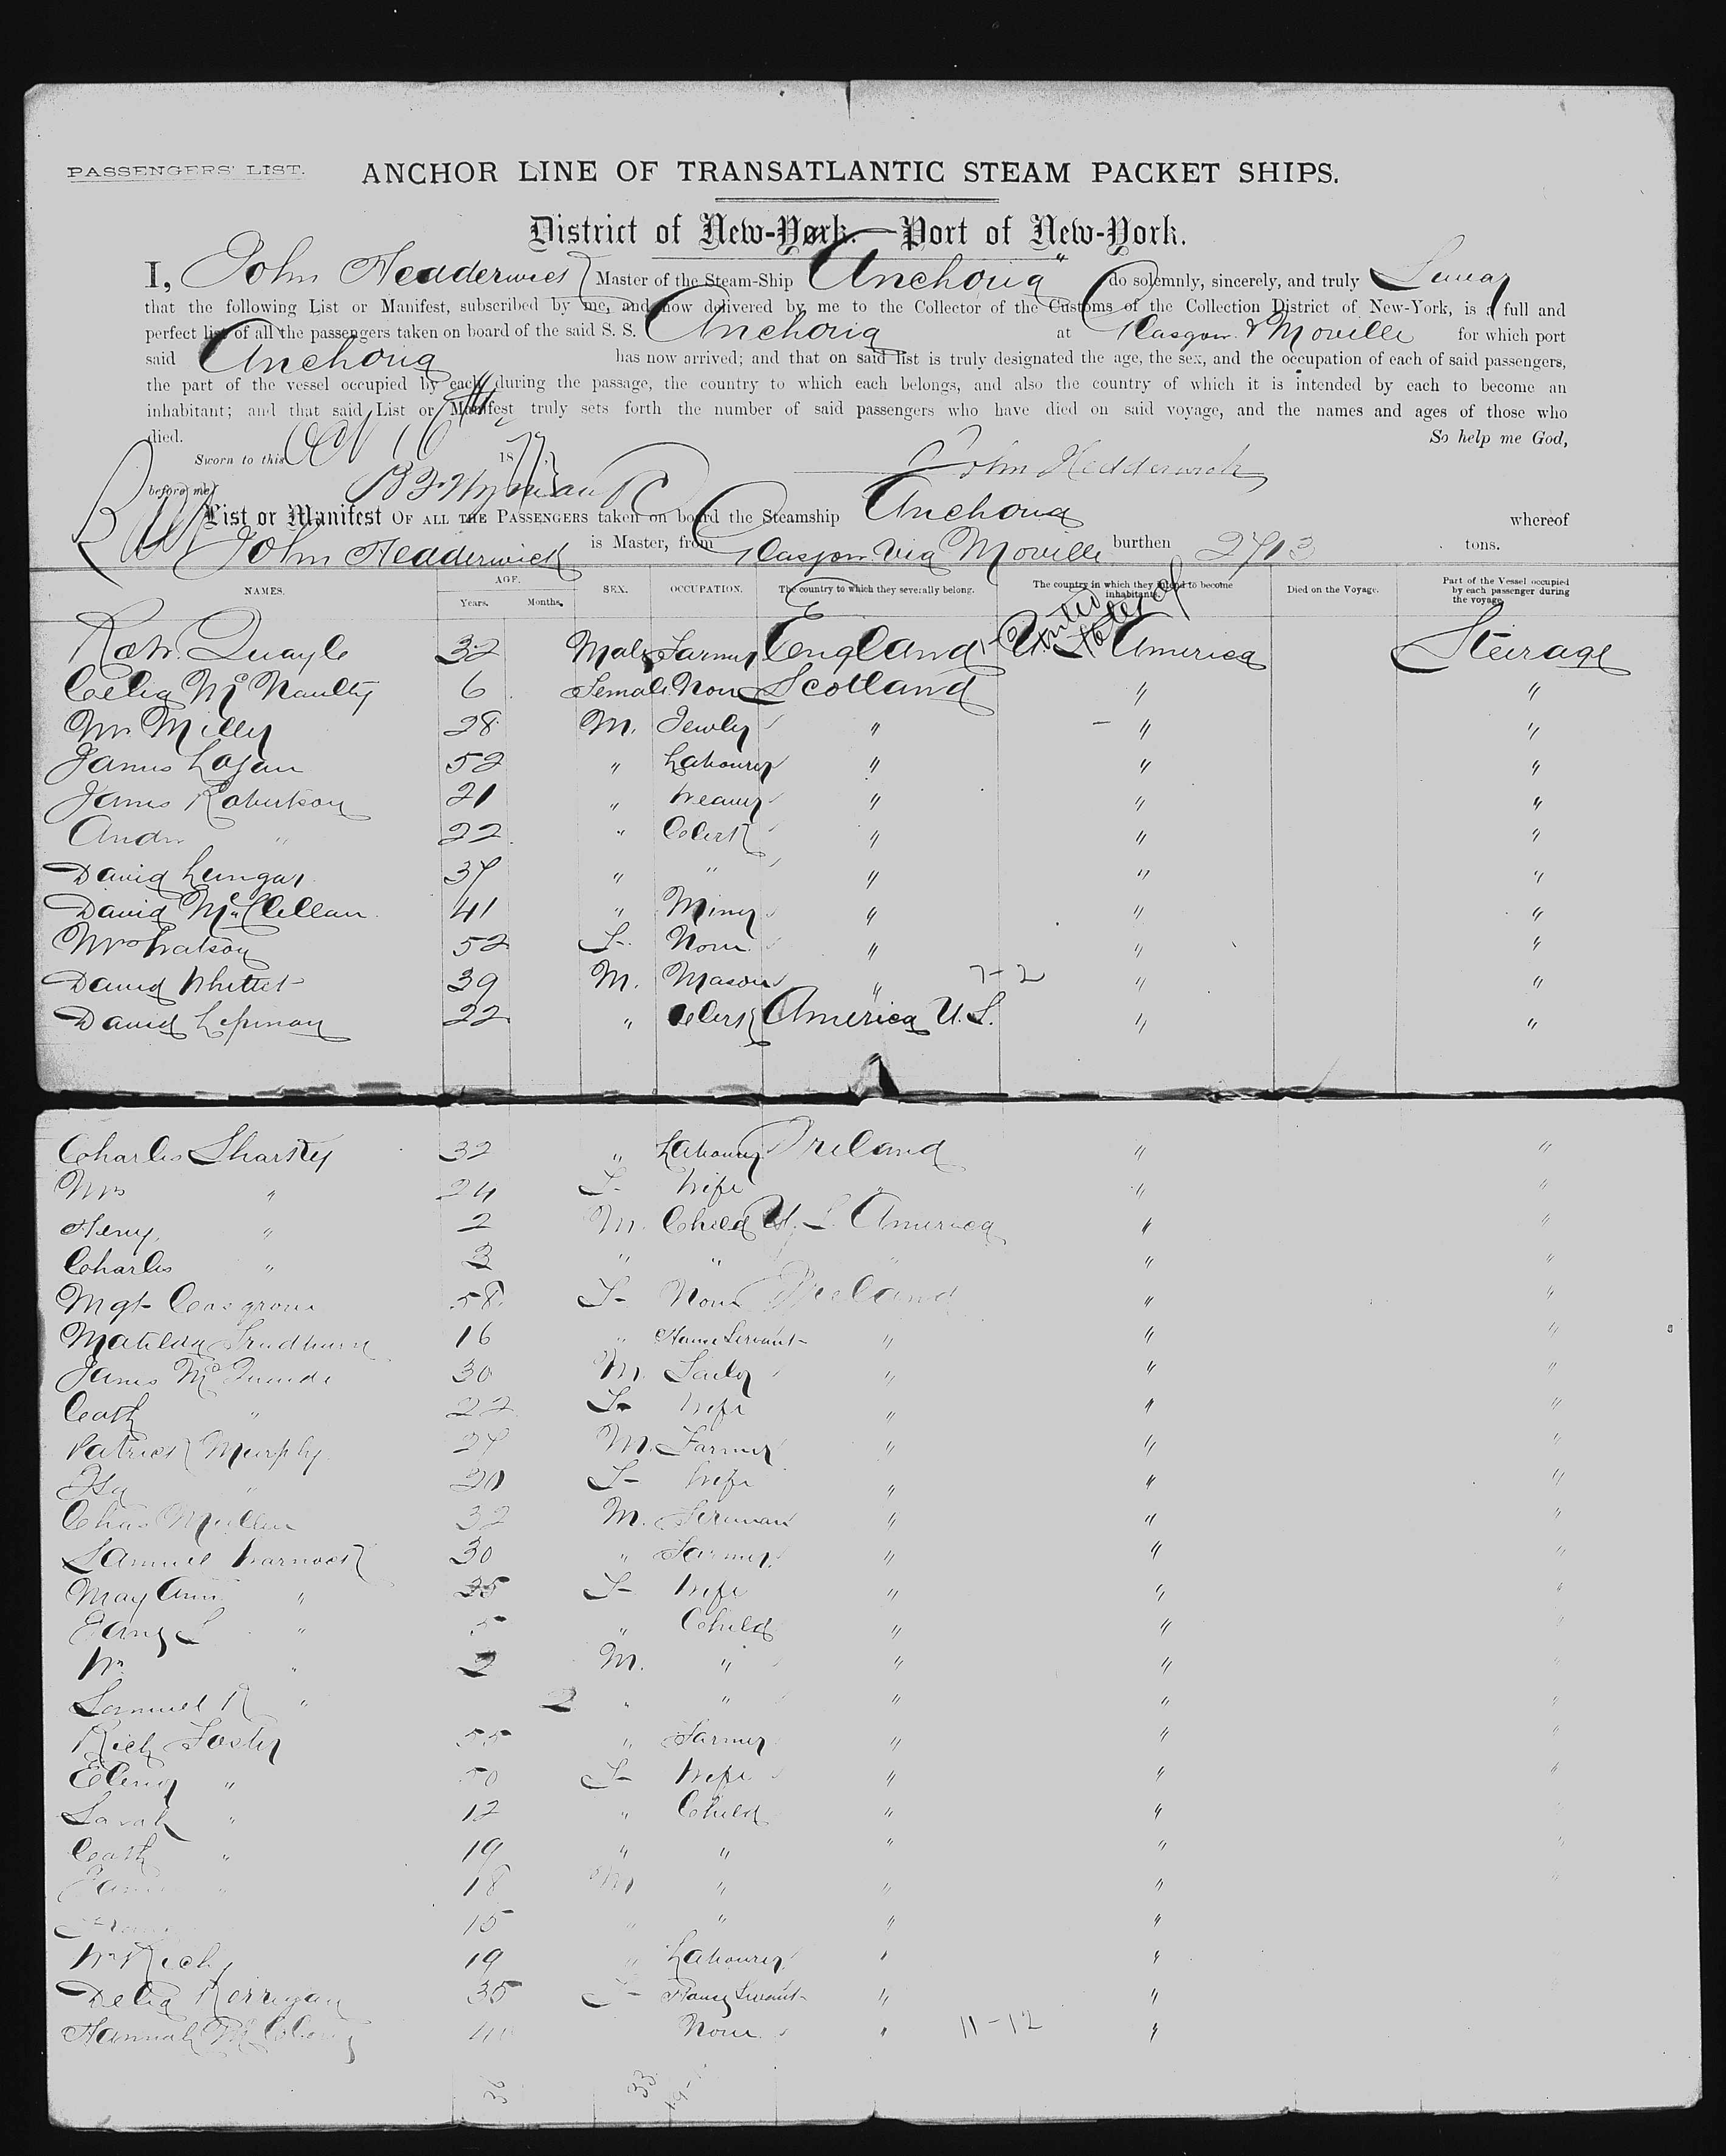 PASSENGERS' LIST.
ANCHOR LINE OF TRANSATLANTIC STEAM PACKET SHIPS.
District of New-York.—Port of New-York.
I, John Hedderwick Master of the Steam-Ship "Anchoria" do solemnly, sincerely, and truly Swear
that the following List or Manifest, subscribed by me, and now delivered by me to the Collector of the Customs of the Collection District of New-York, is a full and
perfect list of all the passengers taken on board of the said S. S. Anchoria at Glasgow & Moville for which port
said Anchoria has now arrived; and that on said list is truly designated the age, the sex, and the occupation of each of said passengers,
the part of the vessel occupied by each during the passage, the country to which each belongs, and also the country of which it is intended by each to become an
inhabitant; and that said List or Manifest truly sets forth the number of said passengers who have died on said voyage, and the names and ages of those who
died. So help me God,
Sworn to this Oct 16th 1877
John Hedderwick
before me
List or Manifest OF ALL THE PASSENGERS taken on board the Steamship Anchoria whereof
John Hedderwick is Master, from Glasgow via Moville burthen 2713 tons.
NAMES. AGE. Years. Months. SEX. OCCUPATION. The country to which they severally belong. The country in which they intend to become inhabitants. Died on the Voyage. Part of the Vessel occupied by each passenger during the voyage.
United States of
Robt. Quayle 32 Male Farmer England U.S. America Steerage
Celia McNaulty 6 Female None Scotland " "
Wm Miller 28 M. " " "
James Logan 52 " Labourer " " "
James Robertson 21 " Weaver " " "
Andw " 22 " Clerk " " "
David 37 " " " " "
David McClellan 41 " Miner " " "
Mrs Watson 52 F. None " " "
David Whittet 39 M. Mason " 7-2 " "
David 22 " Clerk America U.S. " "
Charles Sharkey 32 " Labourer Ireland " "
Mrs " 24 F. Wife " " "
Henry " 2 M. Child U.S. America " "
Charles " 3 " " " "
Mgt Cosgrove 58 F. None Ireland " "
Matilda 16 " House Servant " " "
James 30 M. Sailor " " "
Cath " 22 F. Wife " " "
Patrick Murphy 27 M. Farmer " " "
Isa " 20 F. Wife " " "
Chas Mullen 32 M. Fireman " " "
Samuel Warnock 30 " Farmer " " "
Mary Ann " 35 F. Wife " " "
Jane S " 5 " Child " " "
Wm " 2 M. " " " "
Samuel R " 2 " " " " "
Rich Foster 55 " Farmer " " "
" 50 F. Wife " " "
Sarah " 12 " Child " "
Cath " 19 " " " " "
" 18 M " " "
15 " " " "
Wm Rich 19 " Labourer " "
Delia Kerrigan 35 F. House Servant " "
Hannah None " 11-12 "
36 33